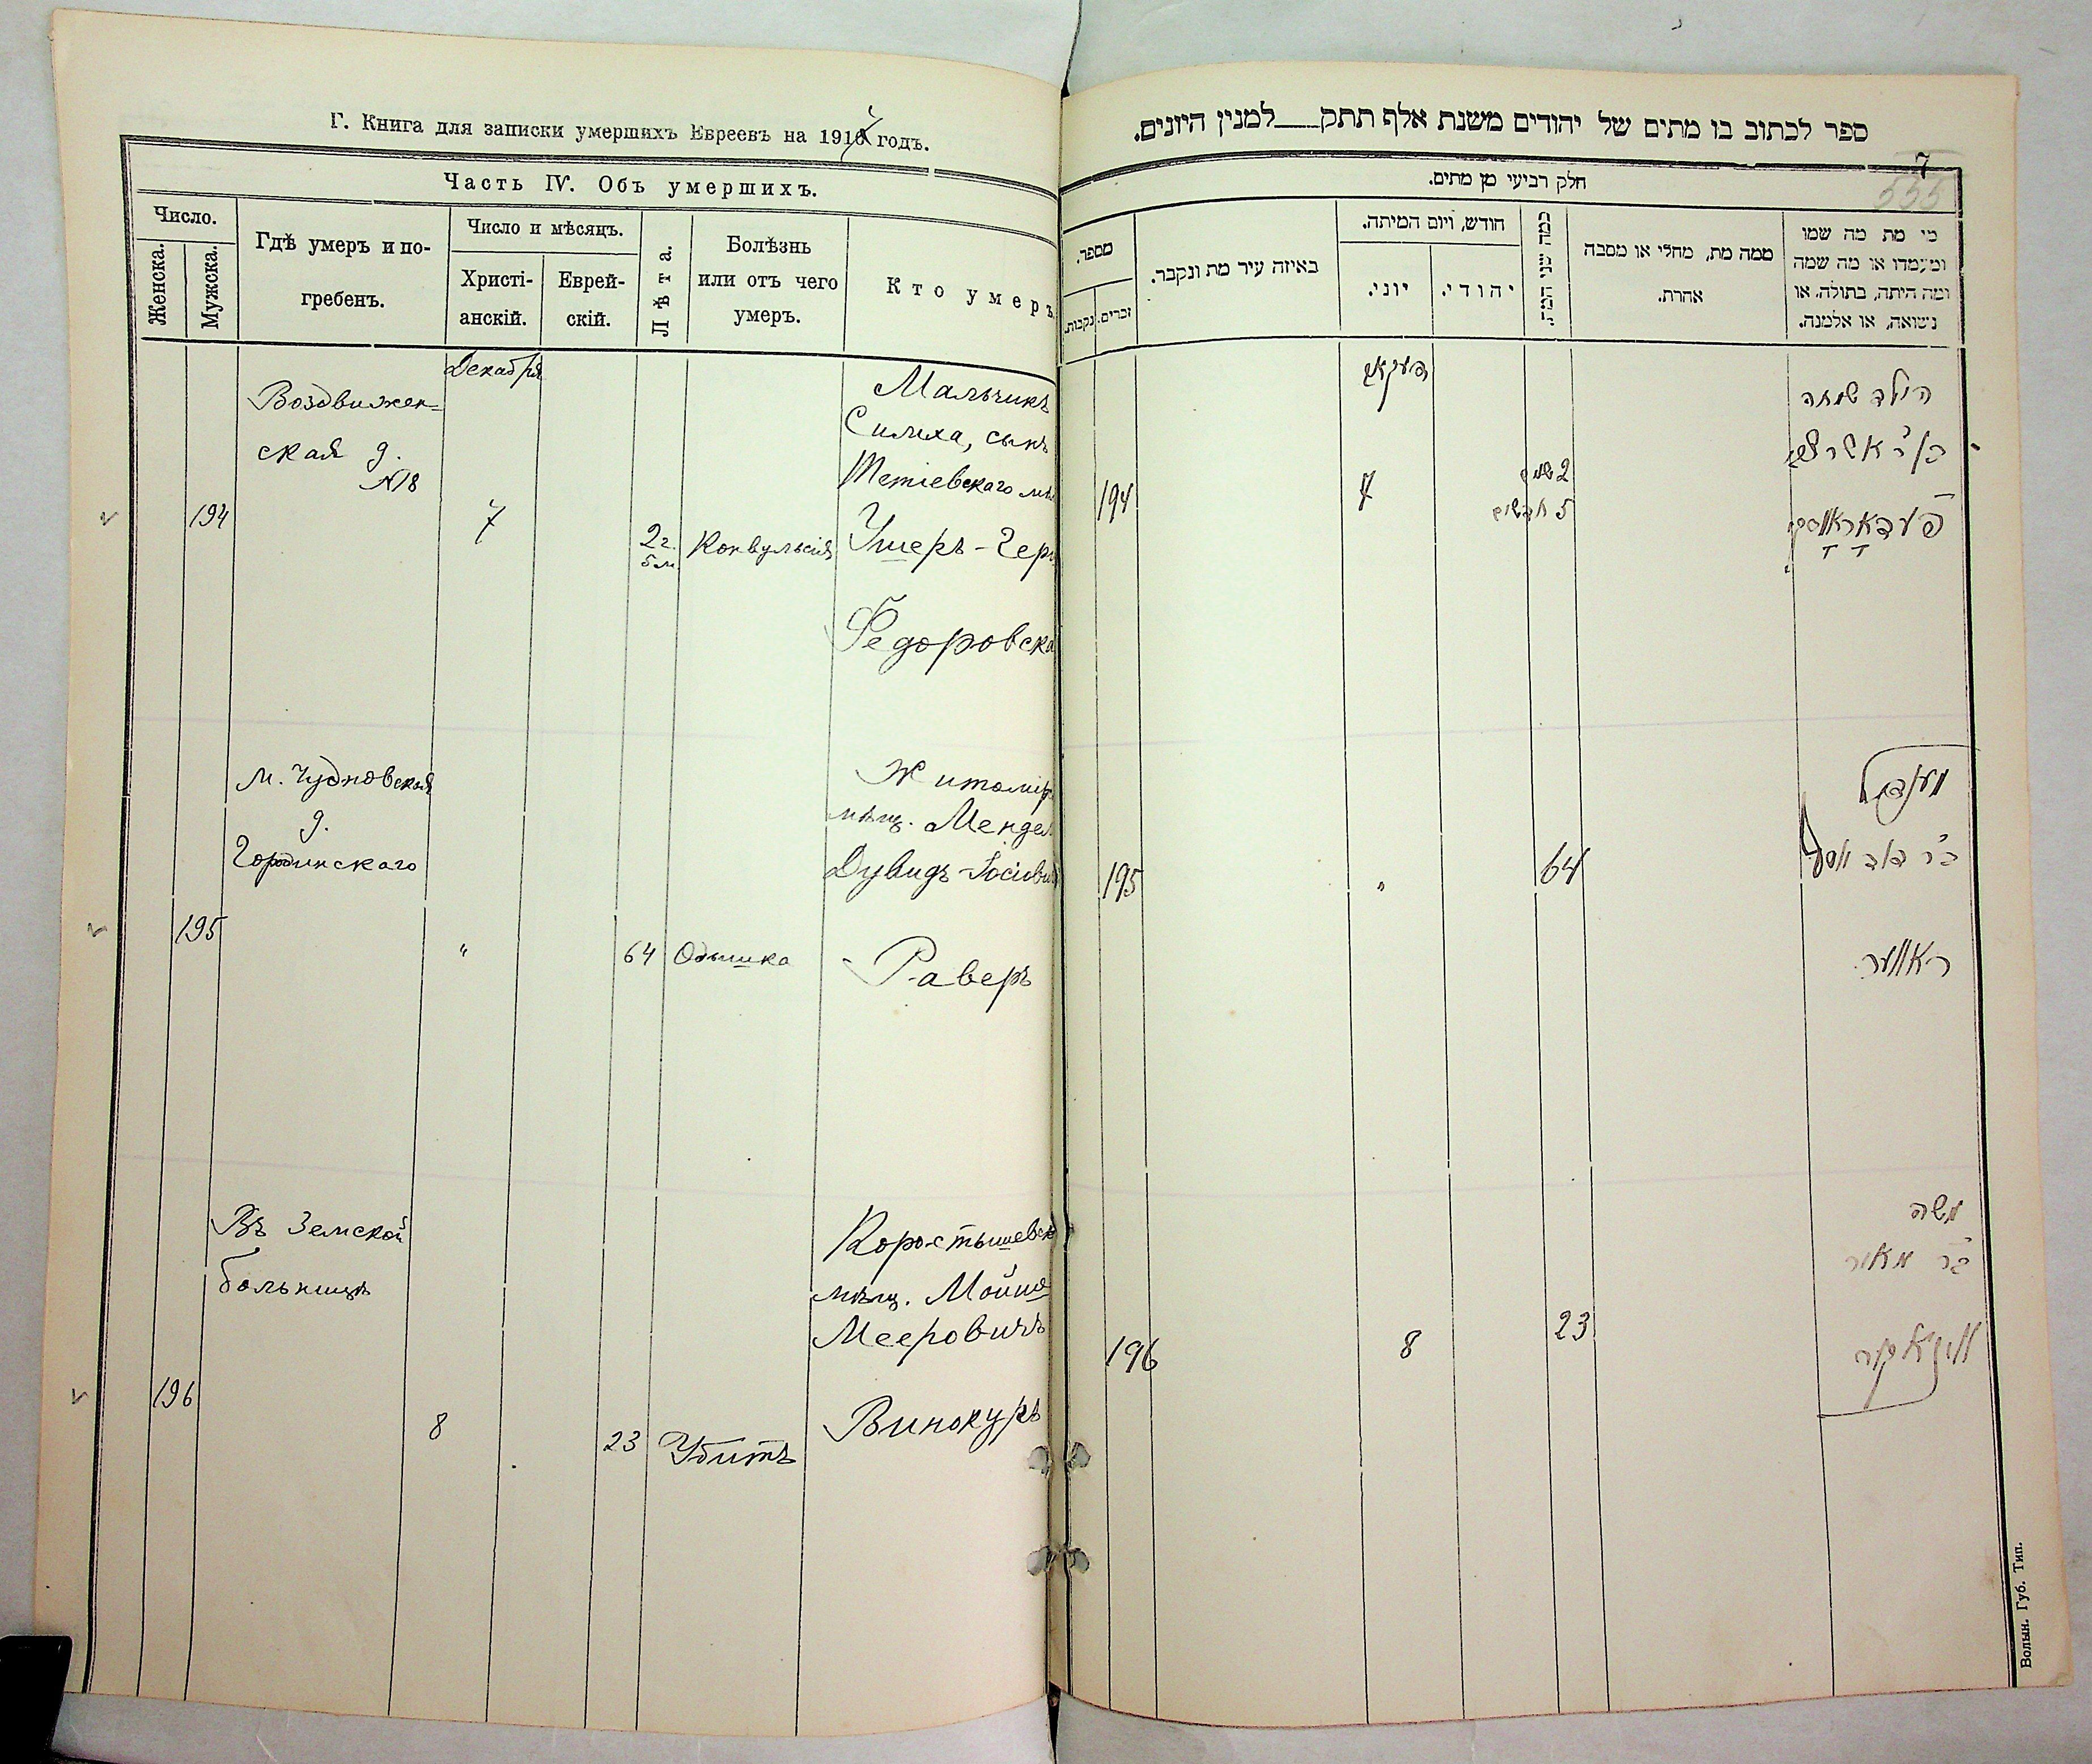 Г. Книга для записки умершихъ Евреевъ на 191 годъ.
Часть IV. Объ умершихъ.
Число.
Женска.
Мужска.
Гдѣ умеръ и по-
гребенъ.
Число и мѣсяцъ.
Христі-
анскій.
Еврей-
скій.
Лѣта.
Болѣзнь
или отъ чего
умеръ.
Кто умеръ
Декабря
194
Воздвижен-
ская д.
№18
7
2 г.
5 м.
Конвульсія
Мальчикъ
Симха, сынъ
Тетіевскаго
Ушеръ-Гер
Федоровска
195
м. Чудновская
д.
Городинскаго
"
64
Одышка
Житомір
мѣщ. Мендел
Дувидъ-Іосіов
Раверъ
196
Въ Земской
больницѣ
8
23
Убитъ
Коростышевск
мѣщ. Мойше
Мееровичъ
Винокуръ
ספר לכתוב בו מתים של יהודים משנת אלף תתק למנין היונים.
7
555
חלק רביעי מן מתים.
מספר.
נקבות.
זכרים.
באיזה עיר מת ונקבר.
חודש, ויום המיתה.
יוני.
יהודי.
כמה שני המת.
ממה מת, מחלי או מסבה
אחרת.
מי מת מה שמו
ומעמדו או מה שמה
ומה היתה, בתולה, או
נשואה, או אלמנה.
דעקאב
194
7
2 שנים
5 חדשים
הילד שמחה
פעדאראווסקי
195
"
64
מענדיל
ב״ר דוד יוסף
ראווער
196
8
23
משה
ב״ר מאיר
ווינאקור
Волын. Губ. Тип.